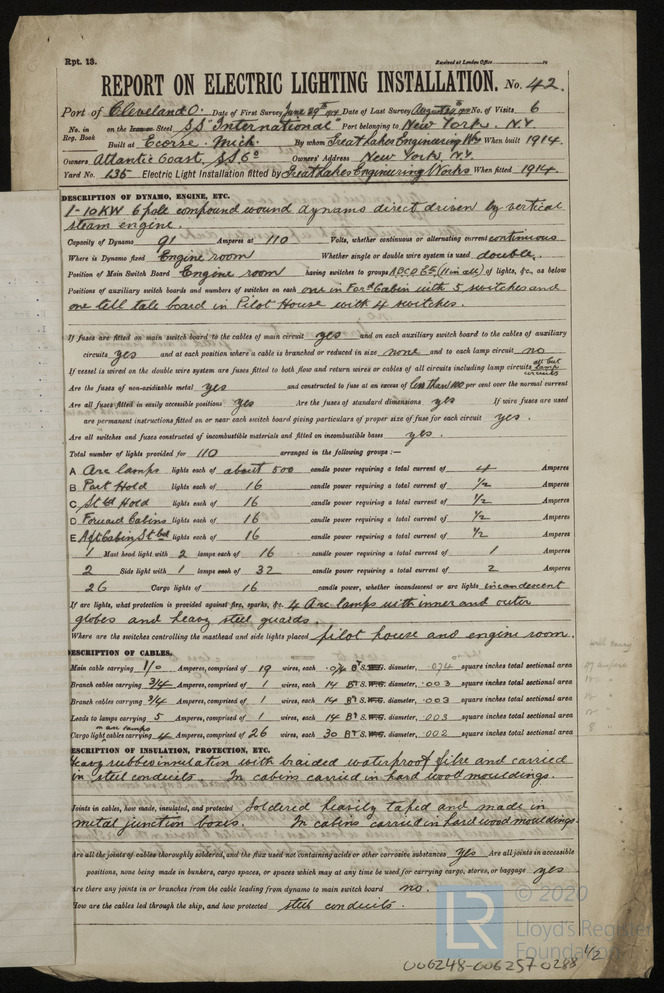 Rpt. 13.
Received at London Office
REPORT ON ELECTRIC LIGHTING INSTALLATION. No. 42.
Port of Cleveland O. Date of First Survey June 29th 1914 Date of Last Survey August 20th 1914 No. of Visits 6
No. in Reg. Book on the Iron or Steel S.S. "International" Port belonging to New York. N.Y.
Built at Ecorse. Mich. By whom Great Lakes Engineering Wks When built 1914.
Owners Atlantic Coast. S.S. Co Owners' Address New York, N.Y.
Yard No. 135 Electric Light Installation fitted by Great Lakes Engineering Works When fitted 1914.
DESCRIPTION OF DYNAMO, ENGINE, ETC.
1-10 KW 6 pole compound wound dynamo direct driven by vertical
steam engine.
Capacity of Dynamo 91 Amperes at 110 Volts, whether continuous or alternating current continuous
Where is Dynamo fixed Engine room Whether single or double wire system is used double.
Position of Main Switch Board Engine room having switches to groups A B C D &c (11 in all) of lights, &c., as below
Positions of auxiliary switch boards and numbers of switches on each one in For'd Cabin with 5 switches and
one tell tale board in Pilot House with 4 switches.
If fuses are fitted on main switch board to the cables of main circuit yes and on each auxiliary switch board to the cables of auxiliary
circuits yes and at each position where a cable is branched or reduced in size none and to each lamp circuit no
If vessel is wired on the double wire system are fuses fitted to both flow and return wires or cables of all circuits including lamp circuits all but lamp circuits
Are the fuses of non-oxidizable metal yes and constructed to fuse at an excess of less than 100 per cent over the normal current
Are all fuses fitted in easily accessible positions yes Are the fuses of standard dimensions yes If wire fuses are used
are permanent instructions fitted on or near each switch board giving particulars of proper size of fuse for each circuit yes.
Are all switches and fuses constructed of incombustible materials and fitted on incombustible bases yes.
Total number of lights provided for 110 arranged in the following groups :—
A Arc lamps lights each of about 500 candle power requiring a total current of 4 Amperes
B Port Hold lights each of 16 candle power requiring a total current of 1/2 Amperes
C Stbd Hold lights each of 16 candle power requiring a total current of 1/2 Amperes
D Forward Cabins lights each of 16 candle power requiring a total current of 1/2 Amperes
E Aft Cabin Stbd lights each of 16 candle power requiring a total current of 1/2 Amperes
1 Mast head light with 2 lamps each of 16 candle power requiring a total current of 1 Amperes
2 Side light with 1 lamps each of 32 candle power requiring a total current of 2 Amperes
26 Cargo lights of 16 candle power, whether incandescent or arc lights incandescent
If arc lights, what protection is provided against fire, sparks, &c. 4 Arc lamps with inner and outer
globes and heavy steel guards.
Where are the switches controlling the masthead and side lights placed pilot house and engine room.
DESCRIPTION OF CABLES.
Main cable carrying 1/0 Amperes, comprised of 19 wires, each .074 B&S. W.G. diameter, .074 square inches total sectional area
Branch cables carrying 3/4 Amperes, comprised of 1 wires, each 14 B&S. W.G. diameter, .003 square inches total sectional area
Branch cables carrying 3/4 Amperes, comprised of 1 wires, each 14 B&S. W.G. diameter, .003 square inches total sectional area
Leads to lamps carrying 5 Amperes, comprised of 1 wires, each 14 B&S. W.G. diameter, .003 square inches total sectional area
Cargo light cables carrying 4 Amperes, comprised of 26 wires, each 30 B&S. W.G. diameter, .002 square inches total sectional area
DESCRIPTION OF INSULATION, PROTECTION, ETC.
Heavy rubber insulation with braided waterproof fibre and carried
in steel conduits. In cabins carried in hard wood mouldings.
Joints in cables, how made, insulated, and protected Soldered heavily taped and made in
metal junction boxes. In cabins carried in hard wood mouldings.
Are all the joints of cables thoroughly soldered, and the flux used not containing acids or other corrosive substances Yes Are all joints in accessible
positions, none being made in bunkers, cargo spaces, or spaces which may at any time be used for carrying cargo, stores, or baggage yes
Are there any joints in or branches from the cable leading from dynamo to main switch board no.
How are the cables led through the ship, and how protected steel conduits.
LR
© 2020
Lloyd's Register
Foundation
1/2
006248-006257-0288